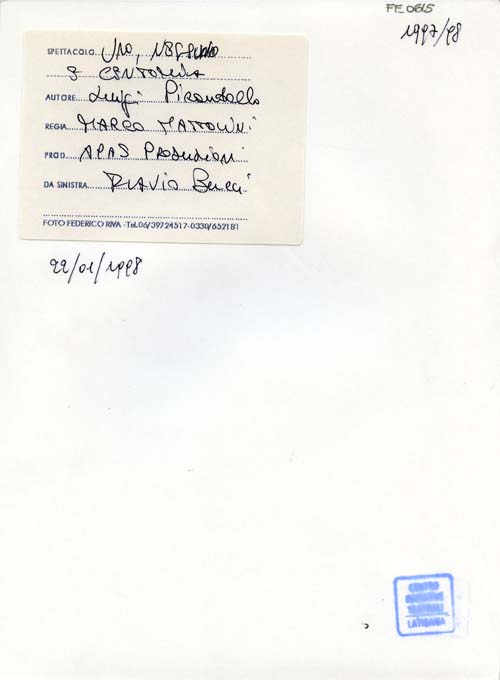 FE 0615
1997/98
SPETTACOLO UNO, NESSUNO
E CENTOMILA
AUTORE Luigi Pirandello
REGIA MARCO MATTOLINI
PROD. APAS PRODUZIONI
DA SINISTRA FLAVIO Bucci
FOTO FEDERICO RIVA - Tel. 06/39724517-0330/652181
22/01/1998
CENTRO
INIZIATIVE
TEATRALI
LATISANA